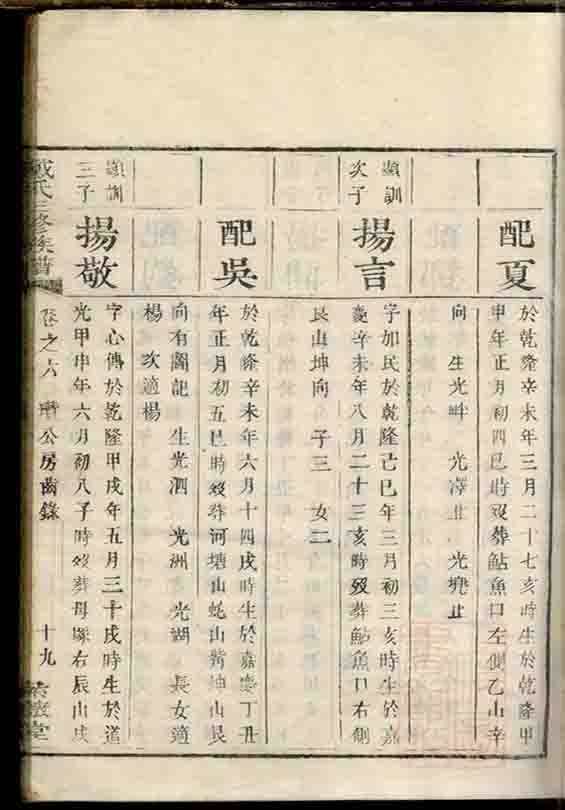 配夏
於乾隆辛未年三月二十七亥時生於乾隆甲
申年正月初四巳時歿葬鮎魚口左側乙山辛
向 生光 光澤止 光堯止
顯訓次子
揚言
字如民於乾隆己巳年三月初三亥時生於嘉
慶辛未年八月二十三亥時歿葬鮎魚口右側
艮山坤向 子三 女二
配吳
於乾隆辛未年六月十四戌時生於嘉慶丁丑
年正月初五巳時歿葬河塘山蛇山嘴坤山艮
向有圖記 生光泗 光洲 光湖 長女適
楊 次適楊
顯訓三子
揚敬
字心傳於乾隆甲戌年五月三十戌時生於道
光甲申年六月初八子時歿葬母塚右辰山戌
戴氏三修族譜 卷之六 公房齒錄 十九